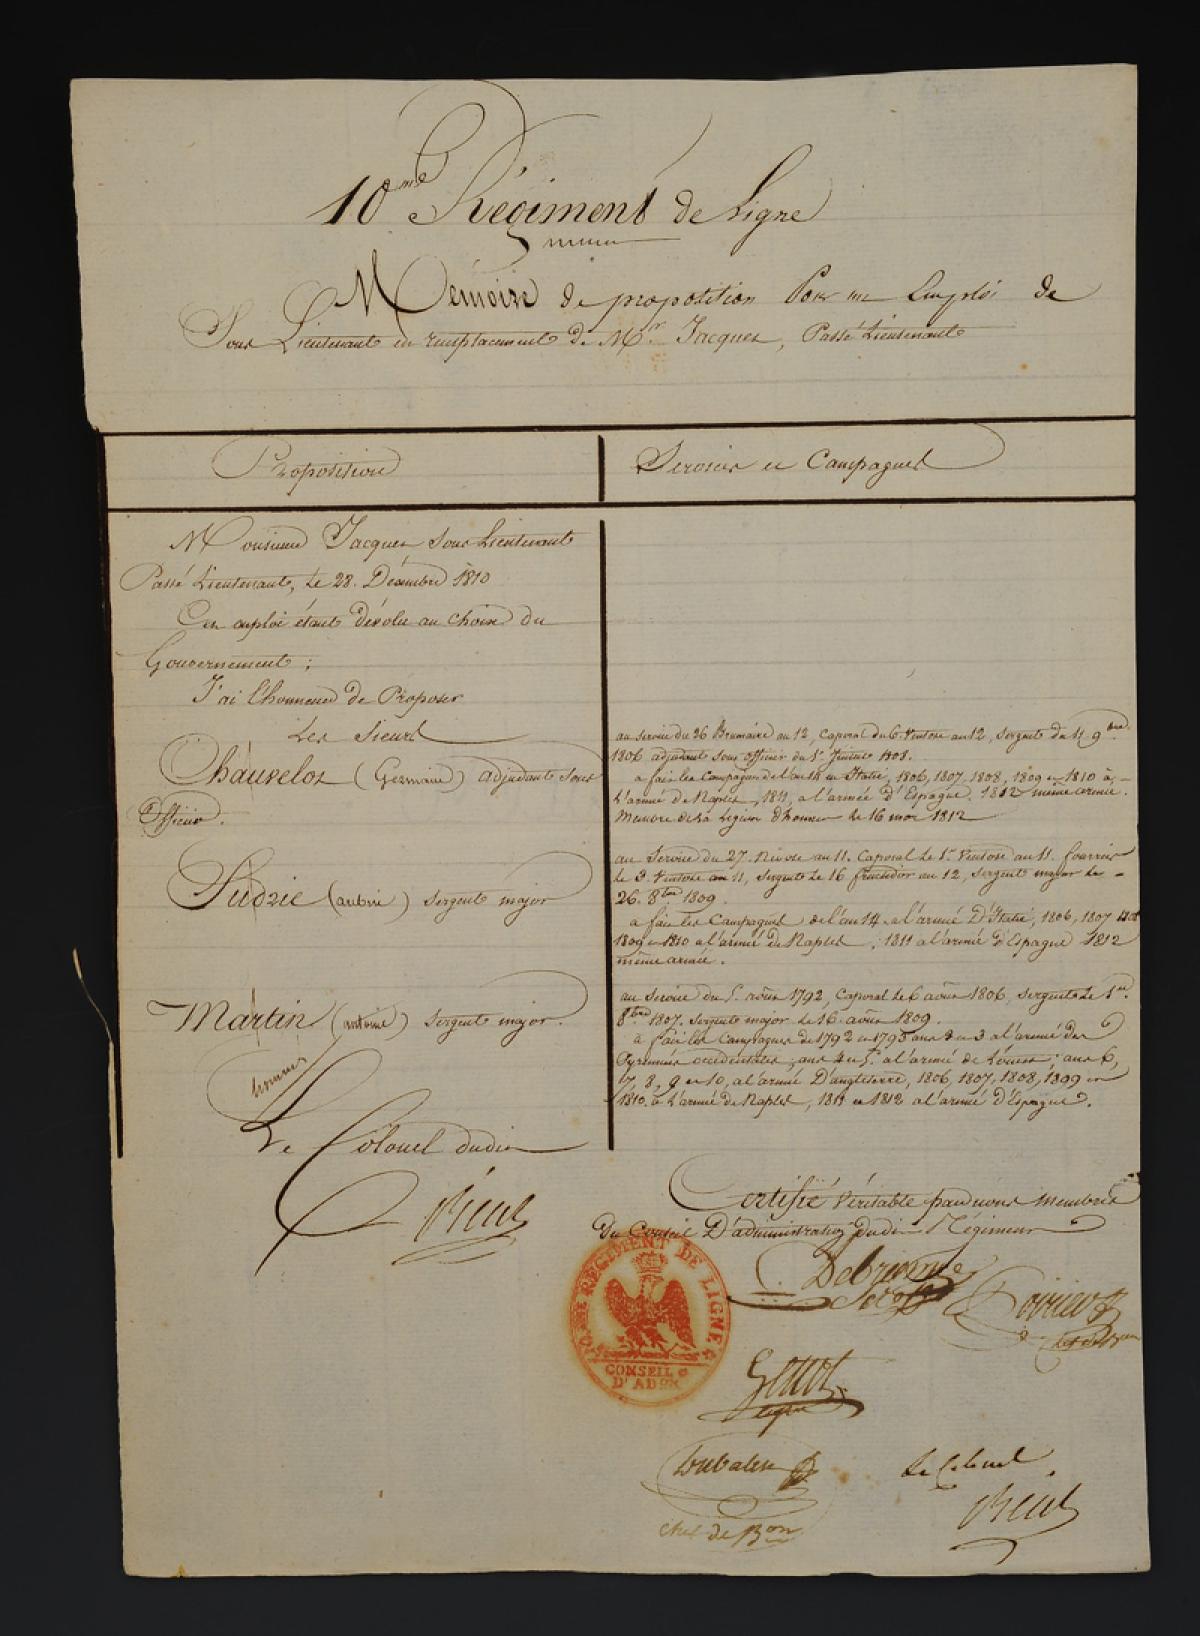 10me Régiment de Ligne
Mémoire de proposition Pour un Emploi de
Sous Lieutenant en remplacement de Mr. Jacques, Passé Lieutenant
Proposition
Services et Campagnes
Monsieur Jacques Sous Lieutenant
Passé Lieutenant, le 28. Décembre 1810
Cen emploi étant dévolu au choix du
Gouvernement ;
J'ai l'honneur de Proposer
Les Sieurs
Chauvelot (Germain) adjudant Sous
Officier.
au service du 26 Brumaire an 12, Caporal du 6 Ventose an 12, Sergent du 11 9bre
1806 adjudant sous officier du 1er 1808.
a fait les Campagnes de l'an 14 en Italie, 1806, 1807, 1808, 1809 et 1810 à
L'armée de Naples, 1811, a l'armée d'Espagne. 1812 même armée.
Membre de la Légion d'honneur le 16 mai 1812
(aubin) sergent major
au Service du 27. Nivose an 11. Caporal le 1er Ventose an 11. fourrier
le 3. Ventose an 11, sergent le 16 fructidor an 12, sergent major le
26. 8bre 1809.
a fait les Campagnes de l'an 14 a l'armée D'Italie, 1806, 1807 1808
1809 et 1810 a l'armée de Naples, ; 1811 a l'armée d'Espagne 1812
même armée.
Martin (antoine) sergent major.
au service du 5. août 1792, Caporal le 6 août 1806, sergent le 1er.
8bre 1807. Sergent major le 16 août 1809.
a fait les Campagnes de 1792 et 1793 ans 2 et 3 a l'armée des
Pyrennées occidentales ; ans 4 et 5. a l'armée de L'ouest ; ans 6,
7, 8, 9 et 10, a l'armée D'angleterre, 1806, 1807, 1808, 1809 et
1810. à L'armée de Naples, 1811 et 1812 a l'armée d'Espagne.
Le Colonel dudit
Certifié véritable par nous membres
Du Conseil D'administration dudit Régiment
10me RÉGIMENT DE LIGNE
CONSEIL
D'ADON
Le Colonel
chef de Bon